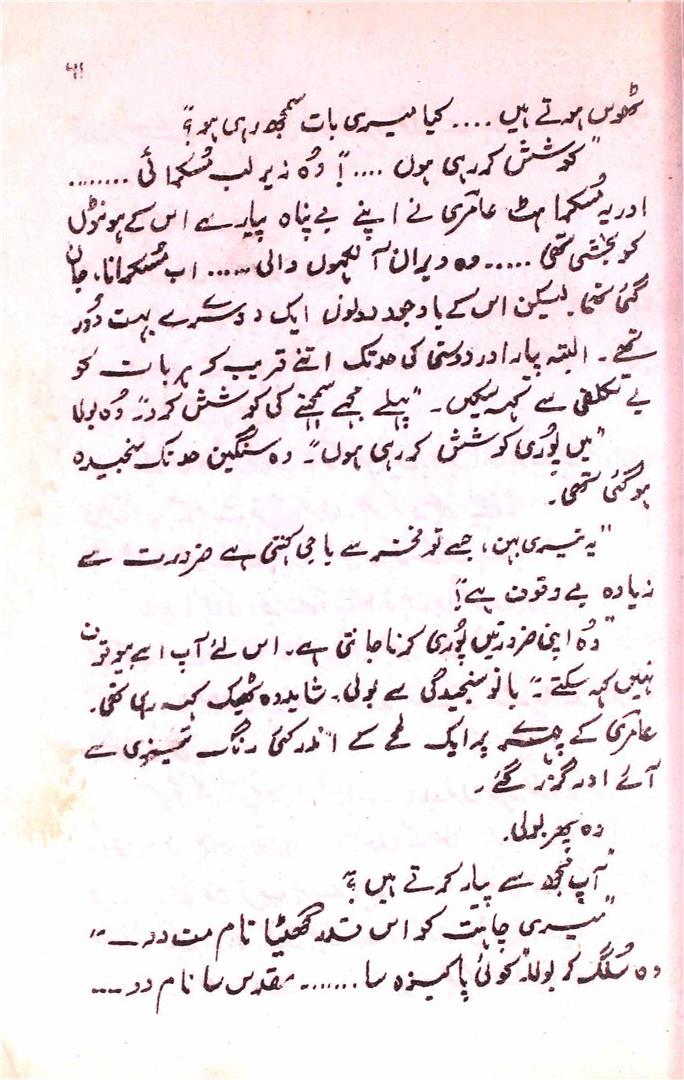 ۶۱
ٹھوس ہوتے ہیں .... کیا میری بات سمجھ رہی ہو؟"
"کوشش کر رہی ہوں ....!" وہ زیر لب مُسکرائی ........
اور یہ مُسکراہٹ عامری نے اپنے بے پناہ پیار سے اس کے ہونٹوں
کو بخشی تھی ..... وہ ویران آنکھوں والی ...... اب مُسکرانا، جان
گئی تھی۔ لیکن اس کے باوجود دونوں ایک دوسرے سے بہت دُور
تھے۔ البتہ پیار اور دوستی کی حد تک اتنے قریب کہ ہر بات کو
بے تکلفی سے کہہ سکیں۔ "پہلے مجھے سمجھنے کی کوشش کرو۔" وُہ بولا
"میں پُوری کوشش کر رہی ہوں"۔ وہ سنگین حد تک سنجیدہ
ہو گئی تھی۔
"یہ تیری بہن، جسے تو فخر سے باجی کہتی ہے ضرورت سے
زیادہ بے وقوف ہے!"
"وُہ اپنی ضرورتیں پُوری کرنا جانتی ہے۔ اس لئے آپ اسے بیوقوف
نہیں کہہ سکتے۔" بانو سنجیدگی سے بولی۔ شاید وہ ٹھیک کہہ رہی تھی۔
عامری کے چہرے پر ایک لمحے کے اندر کئی رنگ تیزی سے
آئے اور گزر گئے۔
وہ پھر بولی۔
"آپ مُجھ سے پیار کرتے ہیں؟"
"میری چاہت کو اس قدر گھٹیا نام مت دو۔۔"
وہ سُلگ کر بولا "کوئی پاکیزہ سا....... مقدس سا نام دو ....